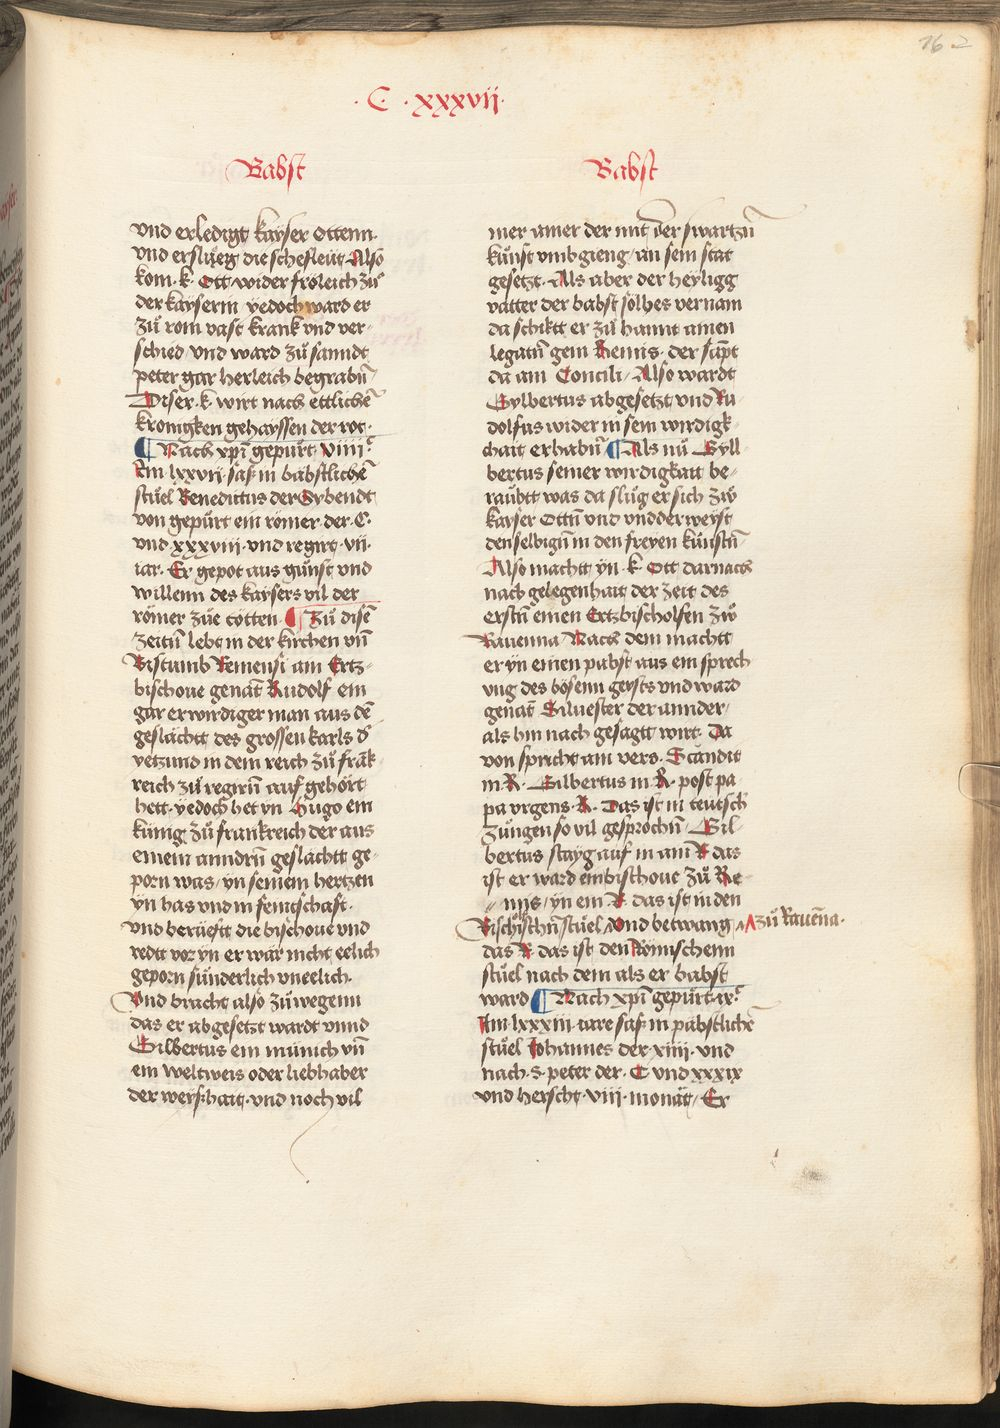 162
· C · xxxvij ·
Babst
vnd erledigt kayser Ottenn·
vnd erslueg die schefleüt Also
kom · k · Ott wider frölich zů
der kayserin yedoch ward er
zů rom vast krank vnd ver⸗
schied vnd ward zů sanndt
peter gar herleich begrabn̄
Diser · k · wirt nach ettlichē
kronigken gehayssen der rot ·
¶ Nach xpī gepürt viiij c
Im lxxvij · saß in bäbstlichē
stůel Benedittus der Sybendt
von gepürt ein römer · der · C ·
vnd xxxviij · vnd regirt · vij ·
iar · Er gepot aus gunst vnd
willenn des kaysers vil der
römer zůe tötten ¶ Zů disē
zeitn̄ lebt in der kirchen vn̄
Bistumb Remensi ain Ertz⸗
bischoue genāt Rudolf ein
gar erwirdiger man aus dē
geslächt des grossen karls d
yetzund in dem reich zů frāk
reich zů regirn̄ auf gehört
hett · yedoch het yn Hugo ein
künig zů frankreich der aus
einem anndrn̄ geslächtt ge⸗
porn was / yn seinem hertzen
yn has vnd in feintschaft ·
vnd berüefft die bischoue vnd
redtt vor yn er wär nicht eelich
geporn sünderlich vneelich ·
Vnd bracht also zů wegenn
das er abgesetzt wardt vnnd
Gilbertus ein münich vn̄
ein weltweis oder liebhaber
der weyßhait · vnd noch vil
Babst
mer ainer der mit der swartzn̄
künst vmbgieng / an sein stat
gesetzt · Als aber der heyligg
vatter der babst solhes vernam
da schiktt er zů hannt ainen
legatn̄ gein Remis · der sāpt
da ain Concili / Also wardt
Gylbertus abgesetzt vnd Ru⸗
dolfus wider in sein wirdigk⸗
chait erhabn̄ ¶ Als nů Gyll⸗
bertus seiner wirdigkait be⸗
raübtt was da slůg er sich zů
kayser Ottn̄ vnd vndderweyst
denselbign̄ in den freyen künstn̄
Also machtt yn · k · Ott darnach
nach gelegenhait der zeit des
erstn̄ einen Ertzbischoffen zů
Rauenna Nach dem machtt
er yn einen pabst aus ein sprech
vng des bösenn geysts vnd ward
genāt Siluester der annder /
als hin nach gesagtt wirt · Da
von spricht ain vers · Scandit
in R · Gilbertus in R · post pa
pa vrgens · R · Das ist in teutsch
zungen so vil gesprochn̄ / Gil⸗
bertus stayg auf in ain R das
ist er ward ein bischoue zů Re⸗
mis / yn ein R · das ist in den
Bischofthn̄ stůel ʌ Vnd betwang ʌ zů Rauēna ·
das R das ist den Römischenn
stůel nach dem als er babst
ward ¶ Nach xpī gepürt · ix c
Im lxxxiij · iare saß in päbstlichē
stůel Johannes der xiiij · vnd
nach · S · peter der · C vnd xxxix
vnd herscht · viij · monāt / Er